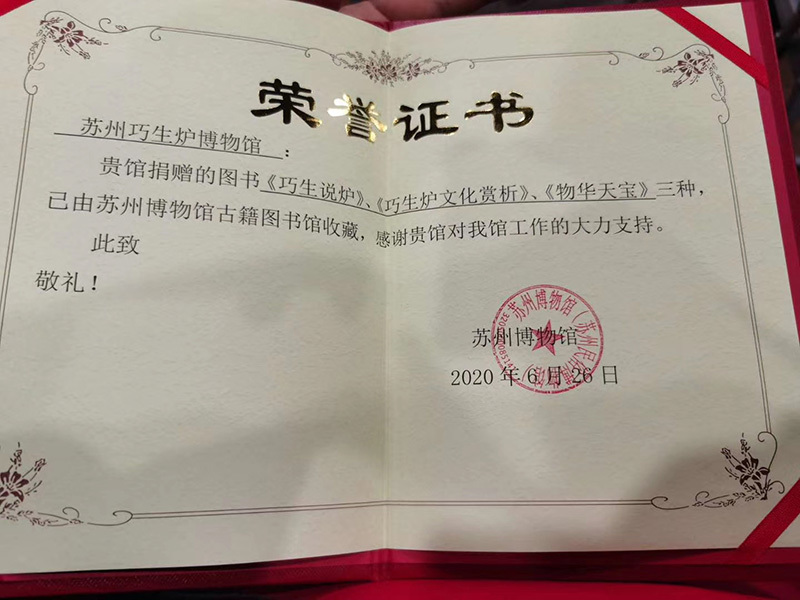 荣誉证书
苏州巧生炉博物馆：
贵馆捐赠的图书《巧生说炉》、《巧生炉文化赏析》、《物华天宝》三种，
已由苏州博物馆古籍图书馆收藏，感谢贵馆对我馆工作的大力支持。
此致
敬礼！
苏州博物馆
2020年6月26日
苏州博物馆（苏州民俗博物馆）